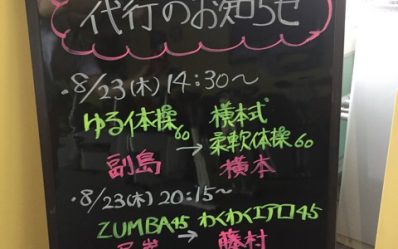 代行のお知らせ
・8/23(木)14:30〜
ゆる体操60 → 横本式柔軟体操60
副島 横本
・8/23(木)20:15〜
ZUMBA45 わくわくエアロ45
→ 藤村